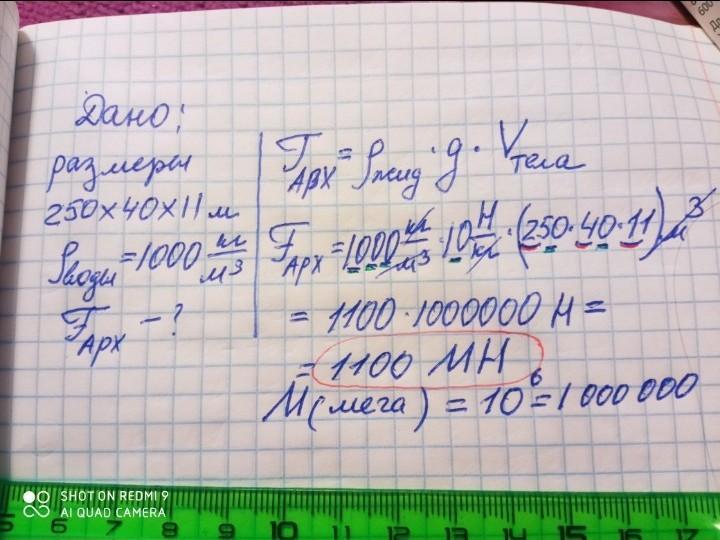 Дано:
размеры
250×40×11 м
ρводы = 1000 кг/м³
FАРХ – ?
FАРХ = ρжид · g · Vтела
FАРХ = 1000 кг/м³ · 10 Н/кг · (250 · 40 · 11) м³
= 1100 · 1000000 Н =
= 1100 МН
М(мега) = 10⁶ = 1 000 000
SHOT ON REDMI 9
AI QUAD CAMERA
5 6 7 8 9 10 11 12 13 14 15 16 17 18